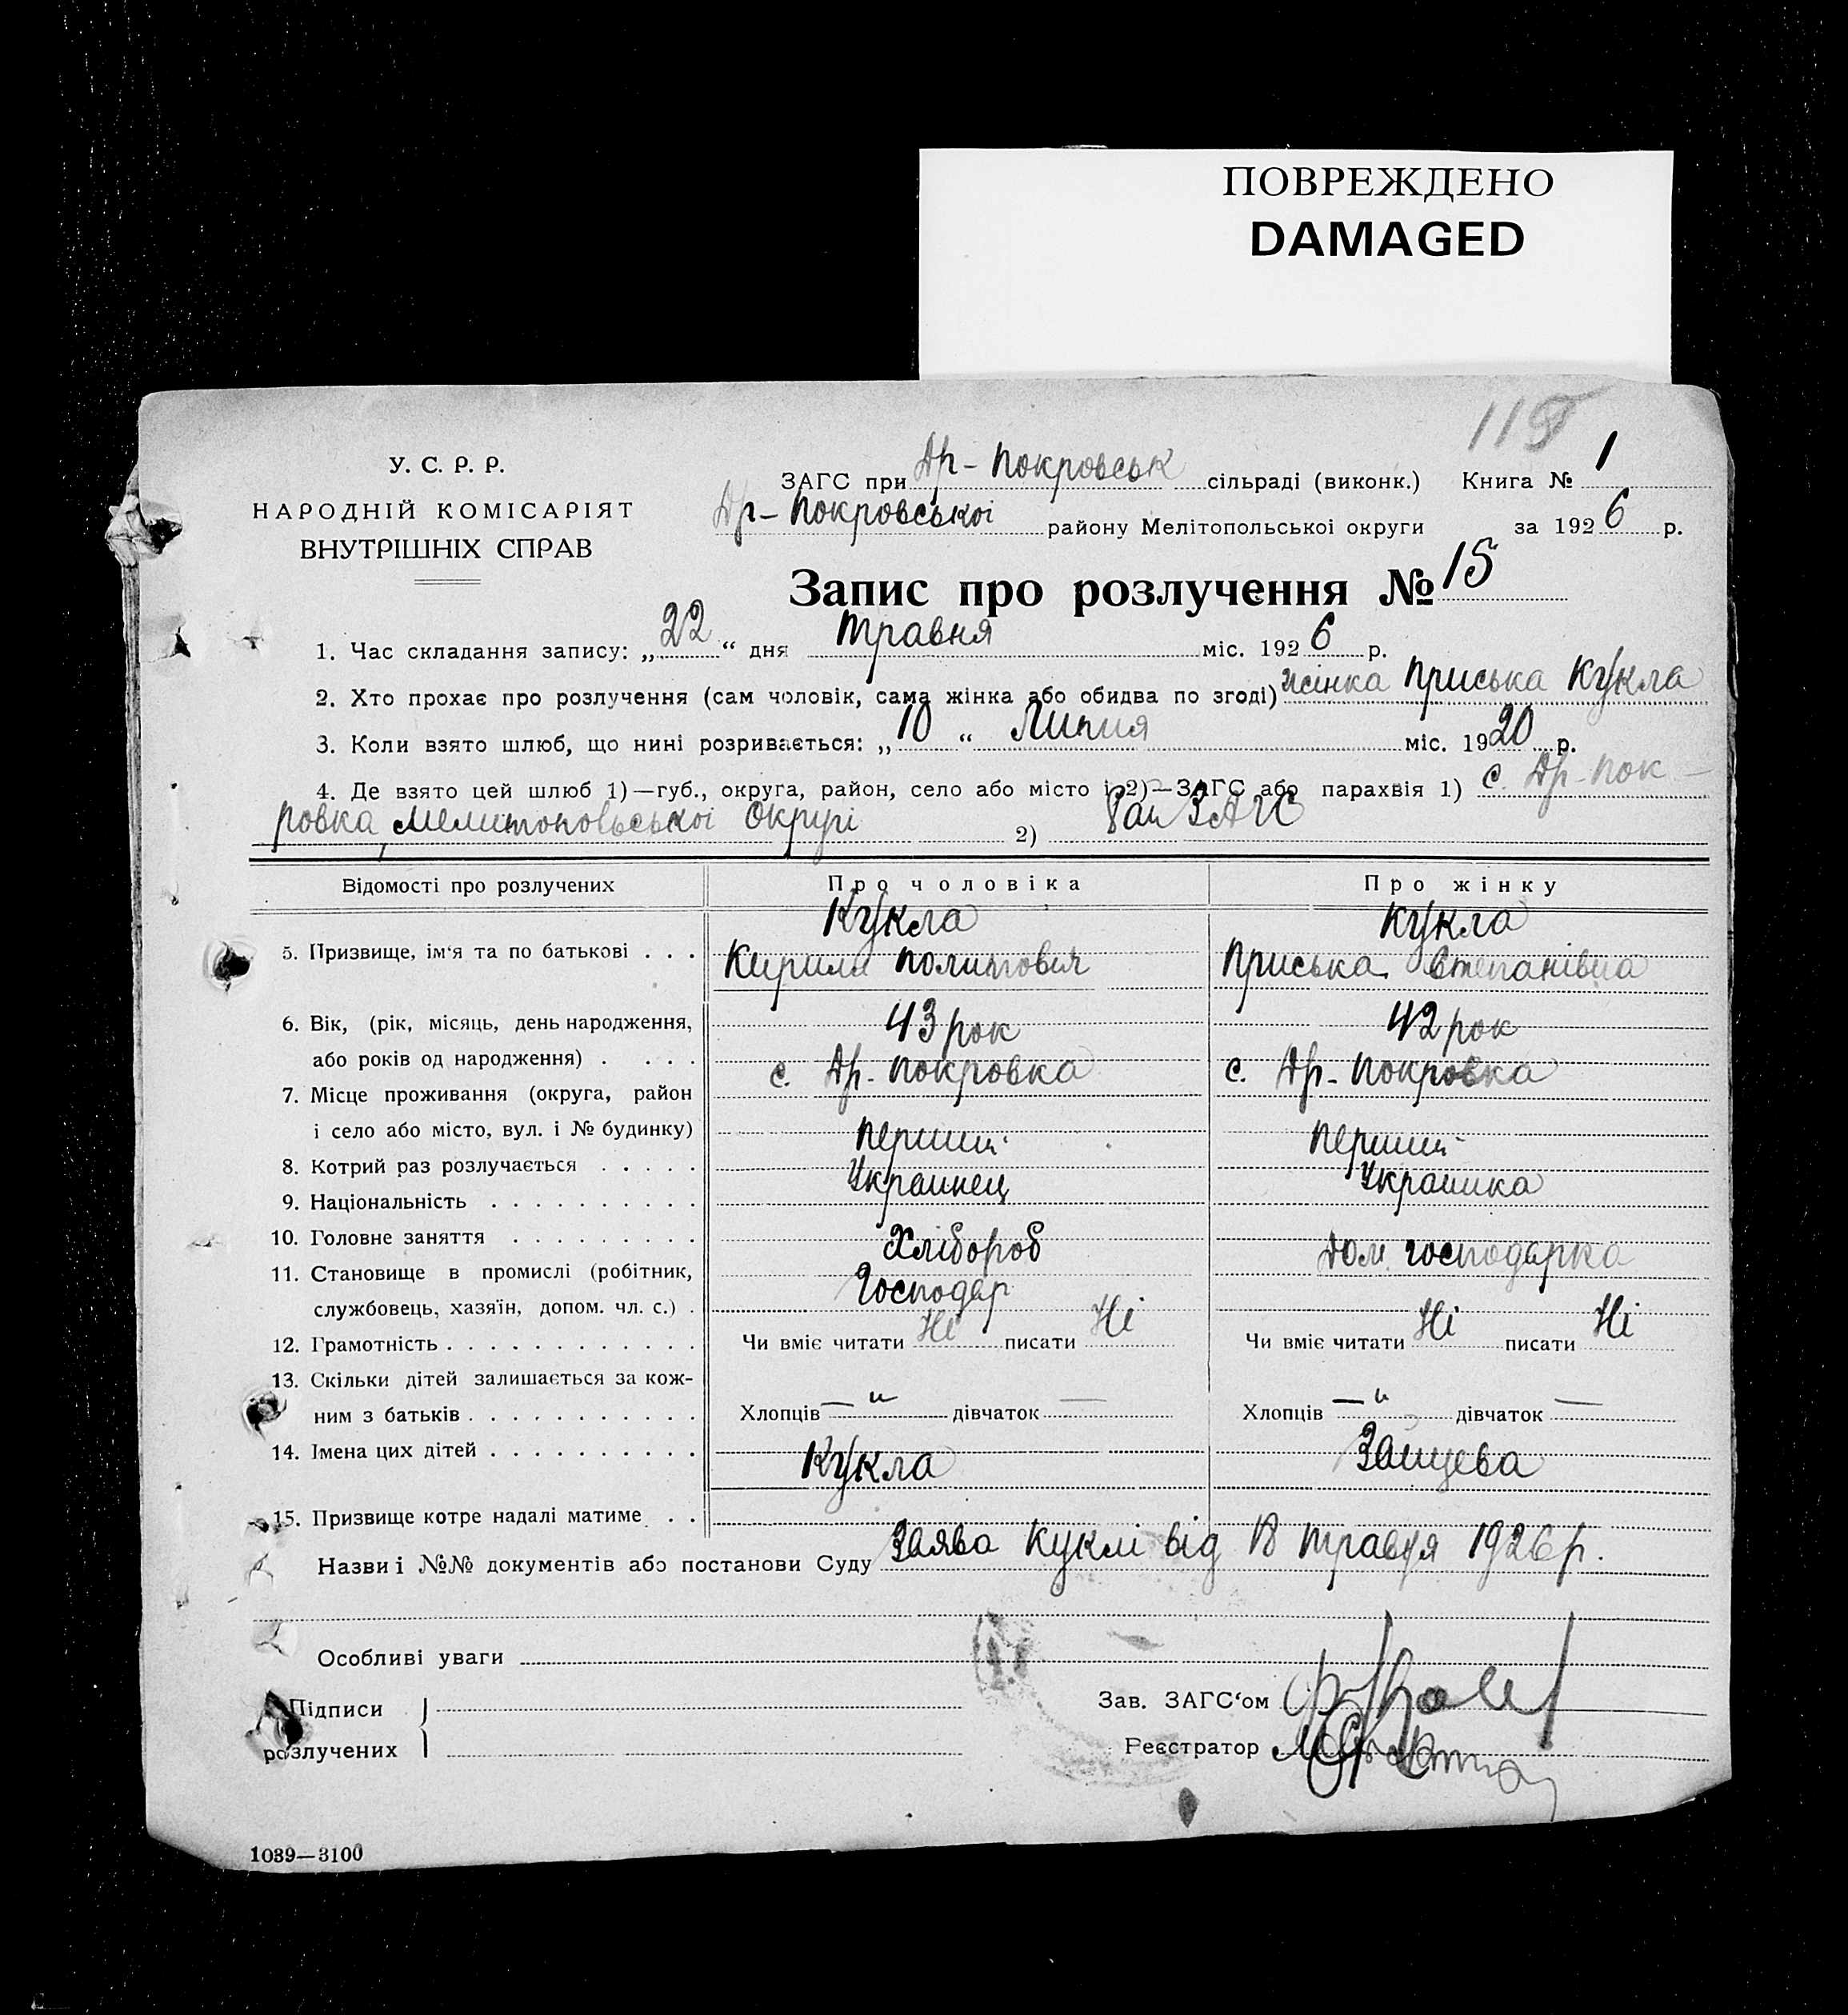 ПОВРЕЖДЕНО
DAMAGED
У. С. Р. Р.
НАРОДНІЙ КОМІСАРІЯТ
ВНУТРІШНІХ СПРАВ
ЗАГС при Др-Покровськ сільраді (виконк.) Книга № 1
Др-Покровськоі району Мелітопольськоі округи за 1926 р.
Запис про розлучення № 15
1. Час складання запису: „22“ дня травня міс. 1926 р.
2. Хто прохає про розлучення (сам чоловік, сама жінка або обидва по згоді) жінка Приська Кукла
3. Коли взято шлюб, що нині розривається: „10“ Липня міс. 1920 р.
4. Де взято цей шлюб 1)—губ., округа, район, село або місто і 2)—ЗАГС або парахвія 1) с. Др-Пок-
ровка, Мелитопольськоі Округі 2) Рай ЗАГС
Відомості про розлучених Про чоловіка Про жінку
Кукла Кукла
5. Призвище, ім'я та по батькові . . . Кирило Политович Приська Степанівна
6. Вік, (рік, місяць, день народження, 43 рок 42 рок
або років од народження) . . . . с. Др-Покровка с. Др-Покровка
7. Місце проживання (округа, район
і село або місто, вул. і № будинку) перший перший
8. Котрий раз розлучається . . . . . Украинец Украинка
9. Національність . . . . . . . . . .
10. Головне заняття . . . . . . . . . Хлібороб Дом. господарка
11. Становище в промислі (робітник, Господар
службовець, хазяїн, допом. чл. с.) .
12. Грамотність . . . . . . . . . . . . Чи вміє читати Ні писати Ні Чи вміє читати Ні писати Ні
13. Скільки дітей залишається за кож-
ним з батьків . . . . . . . . . . . Хлопців — „ дівчаток — Хлопців — „ дівчаток —
14. Імена цих дітей . . . . . . . . . . Кукла Зайцева
15. Призвище котре надалі матиме . .
Назви і №№ документів або постанови Суду Заява Куклі від 18 травня 1926 р.
Особливі уваги
Підписи
розлучених
Зав. ЗАГС'ом
Реєстратор
1039—3100